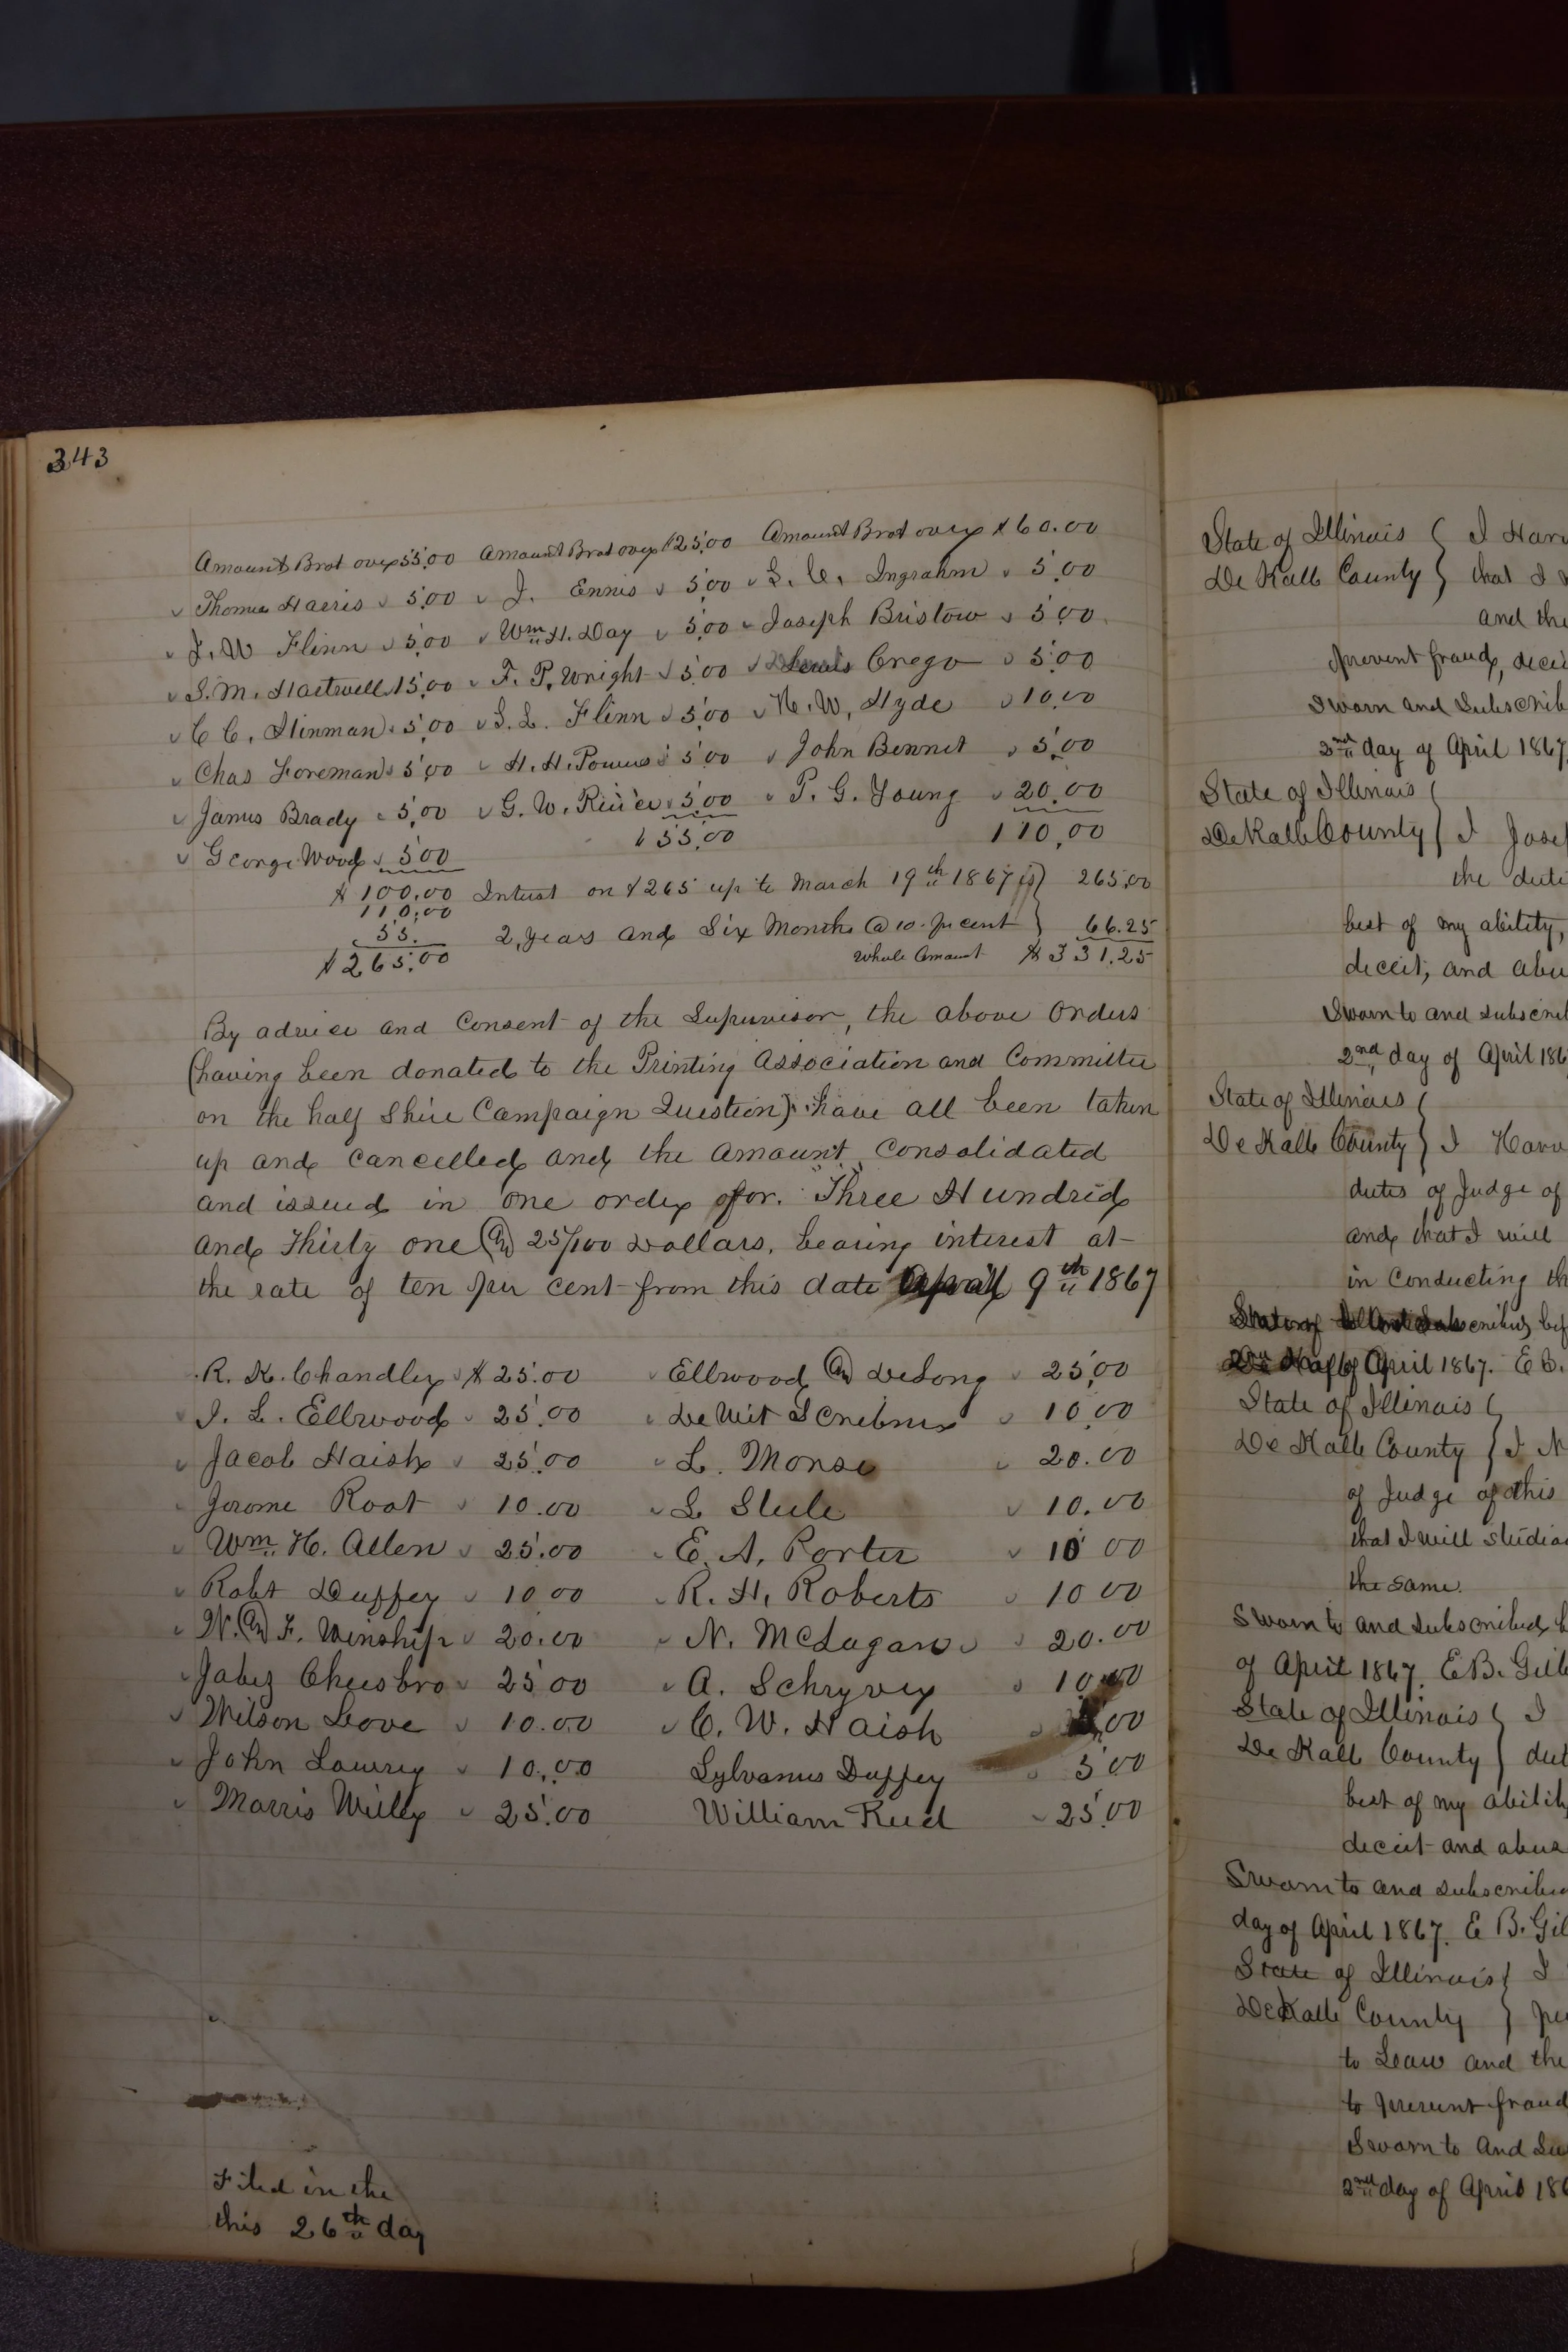 343
Amount Brot over 55,00 Amount Brot over $25,00 Amount Brot over $60.00
Thomas Harris 5,00 J. Ennis 5,00 S. C. Ingrahm 5,00
J. W Flinn 5,00 Wm H. Day 5,00 Joseph Bristow 5,00
S. M. Hartwell 15,00 F. P. Wright 5,00 Lewis Crego 5,00
C C. Hinman 5,00 S. L. Flinn 5,00 H. W, Hyde 10,00
Chas Foreman 5,00 H. H. 5,00 John Bennet 5,00
James Brady 5,00 G. W. 5,00 P. G. Young 20,00
George Wood 500 $55,00 110,00
$100,00 Interest on $265 up to March 19th 1867 is 265,00
110,00
55. 2, Years and Six Months @ 10 pr cent 66.25
$265,00 Whole Amount $331.25
By advice and Consent of the Supervisor, the above Orders
(having been donated to the Printing Association and Committee
on the half Shire Campaign Question) have all been taken
up and Cancelled and the Amount Consolidated
and issued in one order for. Three Hundred
and Thirty one & 25/100 Dollars, bearing interest at
the rate of ten per cent from this date April 9th 1867
R. K. Chandler $25.00 Ellwood & DeLong 25,00
I. L. Ellwood 25.00 DeWit Scribner 10,00
Jacob Haish 25.00 L. Morse 20.00
Jerome Root 10.00 L Steele 10.00
Wm. H. Allen 25.00 E. A. Porter 10 00
Robt Duffey 10 00 R. H. Roberts 10 00
W. & F. Winship 20.00 N. McLagan 20.00
Jabez Cheesbro 25 00 A. Schryver 10,00
Wilson Love 10.00 C. W. Haish 00
John Lowry 10,00 Sylvanus Duffey 5 00
Morris Willey 25.00 William Reed 25.00
Filed in the
this 26th day
State of Illinois I Harv
De Kalb County that I
and the
prevent fraud, decei
Sworn and Subscrib
2nd day of April 1867
State of Illinois
DeKalb County I Jose
the duti
best of my ability,
deceit, and abu
Sworn to and subscrib
2nd day of April 186
State of Illinois
De Kalb County I Harv
duties of Judge of
and that I will
in Conducting th
bef
April 1867. E B.
State of Illinois
De Kalb County I N
of Judge of this
that I will studio
the same.
Sworn to and subscribed b
of April 1867. E B. Gill
State of Illinois I
De Kalb County dut
best of my ability
deceit and abuse
Sworn to and subscribed
day of April 1867. E B. Gil
State of Illinois I
DeKalb County per
to Law and the
to prevent fraud
Sworn to And Su
2nd day of April 186